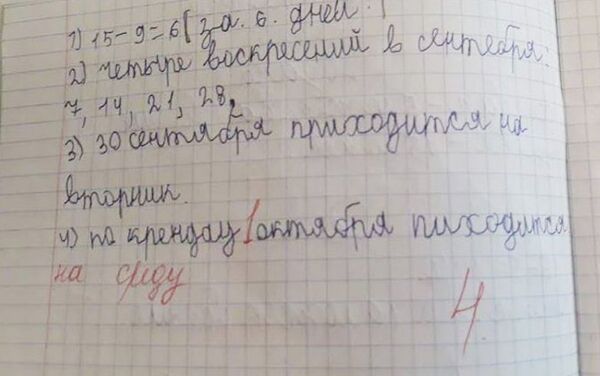 1) 15-9=6( за. 6. дней.
2) четыре воскресений в сентебря:
7, 14, 21, 28,
3) 30 сентября приходится на
вторник.
4) по крендау 1 октября пиходится
на среду
4